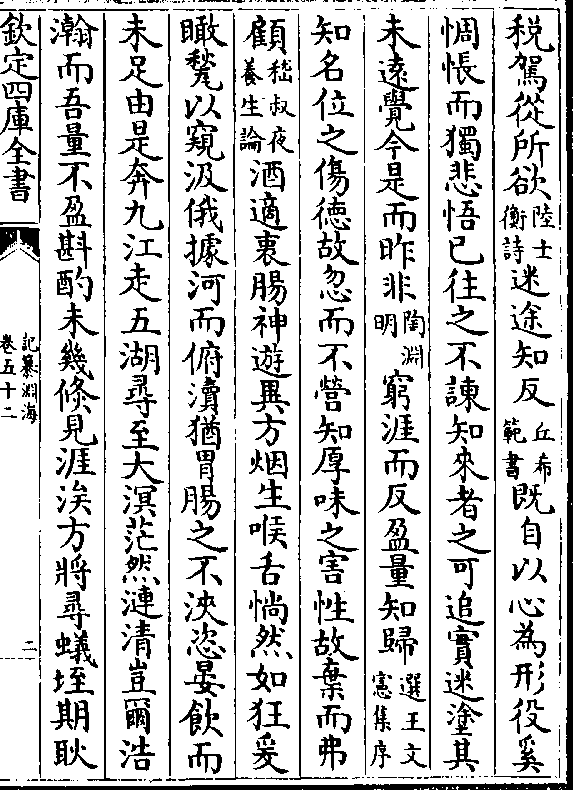 税駕從所欲陸士衡詩迷途知反丘希範書既自以心為形役奚
惆悵而獨悲悟已往之不諫知來者之可追實迷塗其
未遠覺今是而昨非陶淵明窮涯而反盈量知歸選王文憲集序
知名位之傷徳故忽而不營知厚味之害性故棄而弗
顧嵇叔夜養生論酒適衷腸神遊異方烟生喉舌惝然如狂爰
瞰甃以窺汲俄據河而俯瀆猶胃腸之不泱恣晏飲而
未足由是奔九江走五湖尋至大溟茫然漣清豈爾浩
瀚而吾量不盈斟酌未幾倐見涯涘方將尋蟻垤期耿
欽定四庫全書
記纂淵海
卷五十二
二